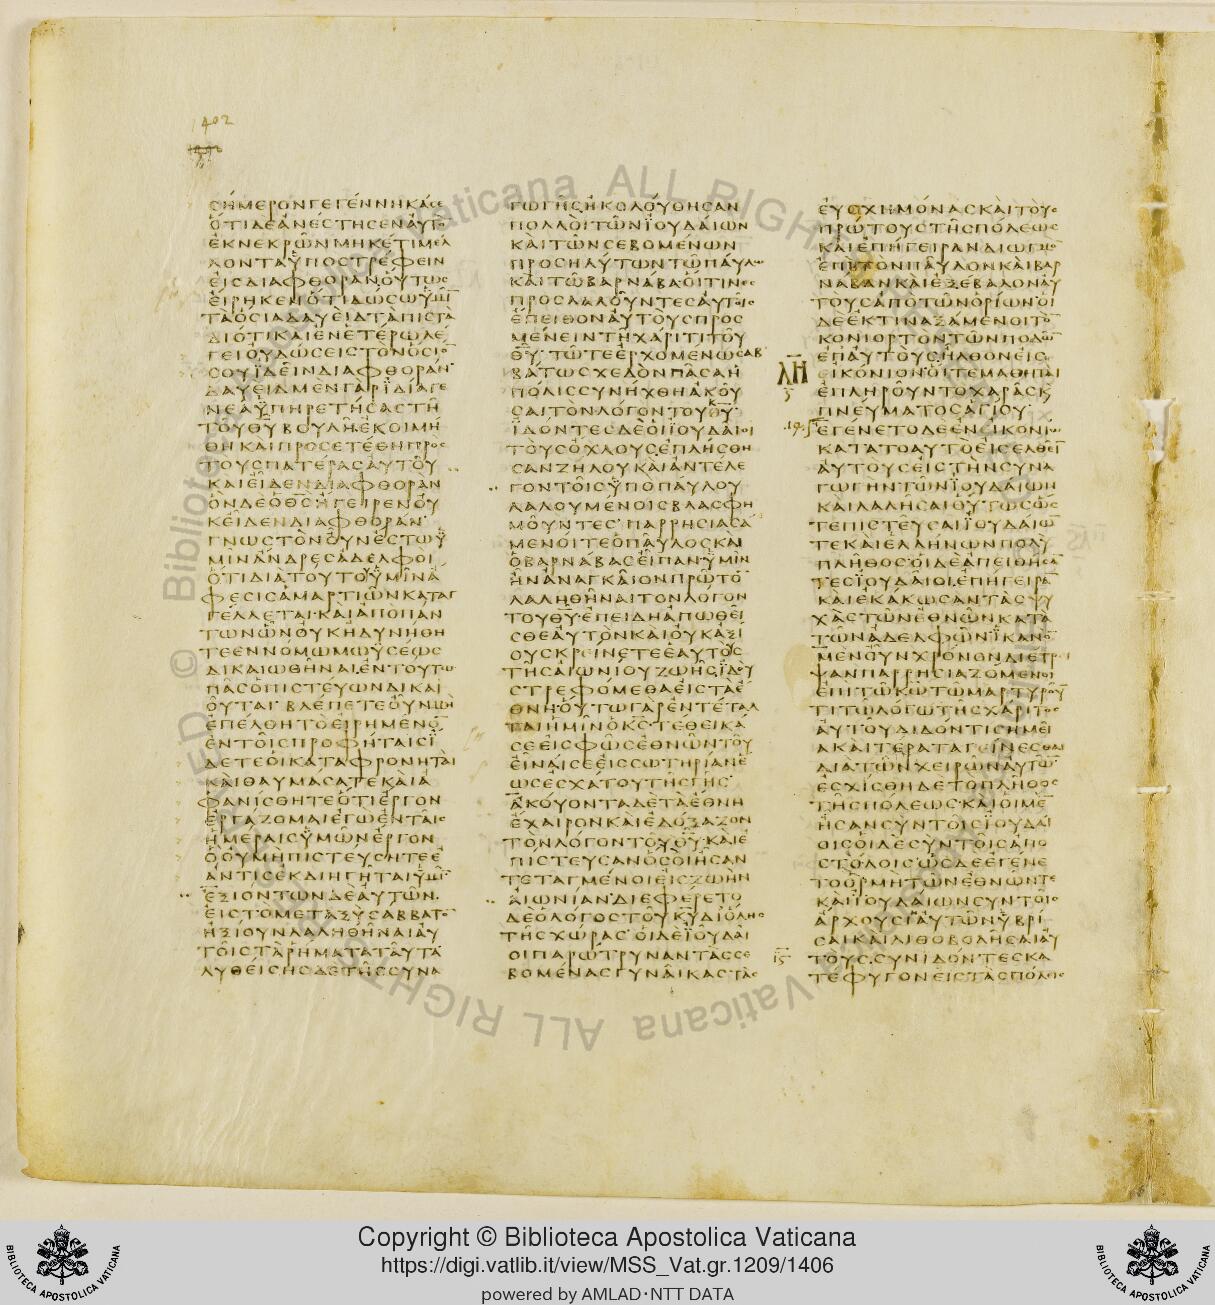 1402
ΣΗΜΕΡΟΝΓΕΓΕΝΝΗΚΑΣΕ
ΟΤΙΔΕΑΝΕΣΤΗΣΕΝΑΥΤΟ
ΕΚΝΕΚΡΩΝΜΗΚΕΤΙΜΕΛ
ΛΟΝΤΑΫΠΟΣΤΡΕΦΕΙΝ
ΕΙΣΔΙΑΦΘΟΡΑΝΟΥΤΩΣ
ΕΙΡΗΚΕΝΟΤΙΔΩΣΩΫΜΙ
ΤΑΟΣΙΑΔΑΥΕΙΔΤΑΠΙΣΤΑ
ΔΙΟΤΙΚΑΙΕΝΕΤΕΡΩΛΕ
ΓΕΙΟΥΔΩΣΕΙΣΤΟΝΟΣΙΟ
ΣΟΥΪΔΕΙΝΔΙΑΦΘΟΡΑΝ
ΔΑΥΕΙΔΜΕΝΓΑΡΪΔΙΑΓΕ
ΝΕΑΫΠΗΡΕΤΗΣΑΣΤΗ
ΤΟΥΘΥΒΟΥΛΗΕΚΟΙΜΗ
ΘΗΚΑΙΠΡΟΣΕΤΕΘΗΠΡΟΣ
ΤΟΥΣΠΑΤΕΡΑΣΑΥΤΟΥ
ΚΑΙΕΙΔΕΝΔΙΑΦΘΟΡΑΝ
ΟΝΔΕΟΘΣΗΓΕΙΡΕΝΟΥ
ΚΕΙΔΕΝΔΙΑΦΘΟΡΑΝ
ΓΝΩΣΤΟΝΟΥΝΕΣΤΩΫ
ΜΙΝΑΝΔΡΕΣΑΔΕΛΦΟΙ
ΟΤΙΔΙΑΤΟΥΤΟΫΜΙΝΑ
ΦΕΣΙΣΑΜΑΡΤΙΩΝΚΑΤΑΓ
ΓΕΛΛΕΤΑΙΚΑΙΑΠΟΠΑΝ
ΤΩΝΩΝΟΥΚΗΔΥΝΗΘΗ
ΤΕΕΝΝΟΜΩΜΩΥΣΕΩΣ
ΔΙΚΑΙΩΘΗΝΑΙΕΝΤΟΥΤΩ
ΠΑΣΟΠΙΣΤΕΥΩΝΔΙΚΑΙ
ΟΥΤΑΙΒΛΕΠΕΤΕΟΥΝΜΗ
ΕΠΕΛΘΗΤΟΕΙΡΗΜΕΝΟ
ΕΝΤΟΙΣΠΡΟΦΗΤΑΙΣΪ
ΔΕΤΕΟΙΚΑΤΑΦΡΟΝΗΤΑΙ
ΚΑΙΘΑΥΜΑΣΑΤΕΚΑΙΑ
ΦΑΝΙΣΘΗΤΕΟΤΙΕΡΓΟΝ
ΕΡΓΑΖΟΜΑΙΕΓΩΕΝΤΑΙΣ
ΗΜΕΡΑΙΣΫΜΩΝΕΡΓΟΝ
ΟΟΥΜΗΠΙΣΤΕΥΣΗΤΕΕ
ΑΝΤΙΣΕΚΔΙΗΓΗΤΑΙΫΜΙ
ΕΞΙΟΝΤΩΝΔΕΑΥΤΩΝ
ΕΙΣΤΟΜΕΤΑΞΥΣΑΒΒΑΤΟ
ΗΞΙΟΥΝΛΑΛΗΘΗΝΑΙΑΥ
ΤΟΙΣΤΑΡΗΜΑΤΑΤΑΥΤΑ
ΛΥΘΕΙΣΗΣΔΕΤΗΣΣΥΝΑ
ΓΩΓΗΣΗΚΟΛΟΥΘΗΣΑΝ
ΠΟΛΛΟΙΤΩΝΪΟΥΔΑΙΩΝ
ΚΑΙΤΩΝΣΕΒΟΜΕΝΩΝ
ΠΡΟΣΗΛΥΤΩΝΤΩΠΑΥΛΩ
ΚΑΙΤΩΒΑΡΝΑΒΑΟΙΤΙΝΕΣ
ΠΡΟΣΛΑΛΟΥΝΤΕΣΑΥΤΟΙΣ
ΕΠΕΙΘΟΝΑΥΤΟΥΣΠΡΟΣ
ΜΕΝΕΙΝΤΗΧΑΡΙΤΙΤΟΥ
ΘΥΤΩΤΕΕΡΧΟΜΕΝΩΣΑΒ
ΒΑΤΩΣΧΕΔΟΝΠΑΣΑΗ
ΠΟΛΙΣΣΥΝΗΧΘΗΑΚΟΥ
ΣΑΙΤΟΝΛΟΓΟΝΤΟΥΘΥ
ΪΔΟΝΤΕΣΔΕΟΙΪΟΥΔΑΙΟΙ
ΤΟΥΣΟΧΛΟΥΣΕΠΛΗΣΘΗ
ΣΑΝΖΗΛΟΥΚΑΙΑΝΤΕΛΕ
ΓΟΝΤΟΙΣΫΠΟΠΑΥΛΟΥ
ΛΑΛΟΥΜΕΝΟΙΣΒΛΑΣΦΗ
ΜΟΥΝΤΕΣΠΑΡΡΗΣΙΑΣΑ
ΜΕΝΟΙΤΕΟΠΑΥΛΟΣΚΑΙ
ΟΒΑΡΝΑΒΑΣΕΙΠΑΝΫΜΙΝ
ΗΝΑΝΑΓΚΑΙΟΝΠΡΩΤΟ
ΛΑΛΗΘΗΝΑΙΤΟΝΛΟΓΟΝ
ΤΟΥΘΥΕΠΕΙΔΗΑΠΩΘΕΙ
ΣΘΕΑΥΤΟΝΚΑΙΟΥΚΑΞΙ
ΟΥΣΚΡΙΝΕΤΕΕΑΥΤΟΥΣ
ΤΗΣΑΙΩΝΙΟΥΖΩΗΣΪΔΟΥ
ΣΤΡΕΦΟΜΕΘΑΕΙΣΤΑΕ
ΘΝΗΟΥΤΩΓΑΡΕΝΤΕΤΑΛ
ΤΑΙΗΜΙΝΟΚΣΤΕΘΕΙΚΑ
ΣΕΕΙΣΦΩΣΕΘΝΩΝΤΟΥ
ΕΙΝΑΙΣΕΕΙΣΣΩΤΗΡΙΑΝΕ
ΩΣΕΣΧΑΤΟΥΤΗΣΓΗΣ
ΑΚΟΥΟΝΤΑΔΕΤΑΕΘΝΗ
ΕΧΑΙΡΟΝΚΑΙΕΔΟΞΑΖΟΝ
ΤΟΝΛΟΓΟΝΤΟΥΘΥΚΑΙΕ
ΠΙΣΤΕΥΣΑΝΟΣΟΙΗΣΑΝ
ΤΕΤΑΓΜΕΝΟΙΕΙΣΖΩΗΝ
ΑΙΩΝΙΑΝΔΙΕΦΕΡΕΤΟ
ΔΕΟΛΟΓΟΣΤΟΥΚΥΔΙΟΛΗΣ
ΤΗΣΧΩΡΑΣΟΙΔΕΪΟΥΔΑΙ
ΟΙΠΑΡΩΤΡΥΝΑΝΤΑΣΣΕ
ΒΟΜΕΝΑΣΓΥΝΑΙΚΑΣΤΑΣ
ΕΥΣΧΗΜΟΝΑΣΚΑΙΤΟΥΣ
ΠΡΩΤΟΥΣΤΗΣΠΟΛΕΩΣ
ΚΑΙΕΠΗΓΕΙΡΑΝΔΙΩΓΜΟ
ΕΠΙΤΟΝΠΑΥΛΟΝΚΑΙΒΑΡ
ΝΑΒΑΝΚΑΙΕΞΕΒΑΛΟΝΑΥ
ΤΟΥΣΑΠΟΤΩΝΟΡΙΩΝΟΙ
ΔΕΕΚΤΙΝΑΞΑΜΕΝΟΙΤΟ
ΚΟΝΙΟΡΤΟΝΤΩΝΠΟΔΩ
ΕΠΑΥΤΟΥΣΗΛΘΟΝΕΙΣ
ΛΗ ΕΙΚΟΝΙΟΝΟΙΤΕΜΑΘΗΤΑΙ
ΕΠΛΗΡΟΥΝΤΟΧΑΡΑΣΚ
ΠΝΕΥΜΑΤΟΣΑΓΙΟΥ
ΕΓΕΝΕΤΟΔΕΕΝΕΙΚΟΝΙΩ
ΚΑΤΑΤΟΑΥΤΟΕΙΣΕΛΘΕΙ
ΑΥΤΟΥΣΕΙΣΤΗΝΣΥΝΑ
ΓΩΓΗΝΤΩΝΪΟΥΔΑΙΩΝ
ΚΑΙΛΑΛΗΣΑΙΟΥΤΩΣΩΣ
ΤΕΠΙΣΤΕΥΣΑΙΪΟΥΔΑΙΩ
ΤΕΚΑΙΕΛΛΗΝΩΝΠΟΛΥ
ΠΛΗΘΟΣΟΙΔΕΑΠΕΙΘΗΣΑ
ΤΕΣΪΟΥΔΑΙΟΙΕΠΗΓΕΙΡΑ
ΚΑΙΕΚΑΚΩΣΑΝΤΑΣΨΥ
ΧΑΣΤΩΝΕΘΝΩΝΚΑΤΑ
ΤΩΝΑΔΕΛΦΩΝΪΚΑΝΟ
ΜΕΝΟΥΝΧΡΟΝΟΝΔΙΕΤΡΙ
ΨΑΝΠΑΡΡΗΣΙΑΖΟΜΕΝΟΙ
ΕΠΙΤΩΚΩΤΩΜΑΡΤΥΡΟΥ
ΤΙΤΩΛΟΓΩΤΗΣΧΑΡΙΤΟΣ
ΑΥΤΟΥΔΙΔΟΝΤΙΣΗΜΕΙ
ΑΚΑΙΤΕΡΑΤΑΓΕΙΝΕΣΘΑΙ
ΔΙΑΤΩΝΧΕΙΡΩΝΑΥΤΩ
ΕΣΧΙΣΘΗΔΕΤΟΠΛΗΘΟΣ
ΤΗΣΠΟΛΕΩΣΚΑΙΟΙΜΕ
ΗΣΑΝΣΥΝΤΟΙΣΪΟΥΔΑΙ
ΟΙΣΟΙΔΕΣΥΝΤΟΙΣΑΠΟ
ΣΤΟΛΟΙΣΩΣΔΕΕΓΕΝΕ
ΤΟΟΡΜΗΤΩΝΕΘΝΩΝΤΕ
ΚΑΙΪΟΥΔΑΙΩΝΣΥΝΤΟΙΣ
ΑΡΧΟΥΣΙΑΥΤΩΝΫΒΡΙ
ΣΑΙΚΑΙΛΙΘΟΒΟΛΗΣΑΙΑΥ
ΤΟΥΣΣΥΝΙΔΟΝΤΕΣΚΑ
ΤΕΦΥΓΟΝΕΙΣΤΑΣΠΟΛΕΙΣ
Copyright © Biblioteca Apostolica Vaticana
https://digi.vatlib.it/view/MSS_Vat.gr.1209/1406
powered by AMLAD·NTT DATA
BIBLIOTECA APOSTOLICA VATICANA
BIBLIOTECA APOSTOLICA VATICANA